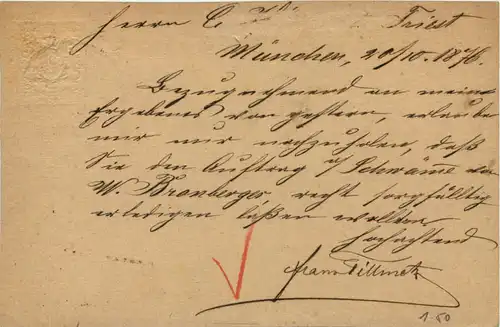 Herrn C Triest
München, 20/10. 1876.
Bezugnehmend an mein
Ergebenes von gestern, erlaube
mir nur nachzuholen, daß
Sie den Auftrag a/ Schwämme an
W. Bronberger recht sorgfältig
erledigen laßen wollten
Hochachtend
Franz Fillmetz
1.50